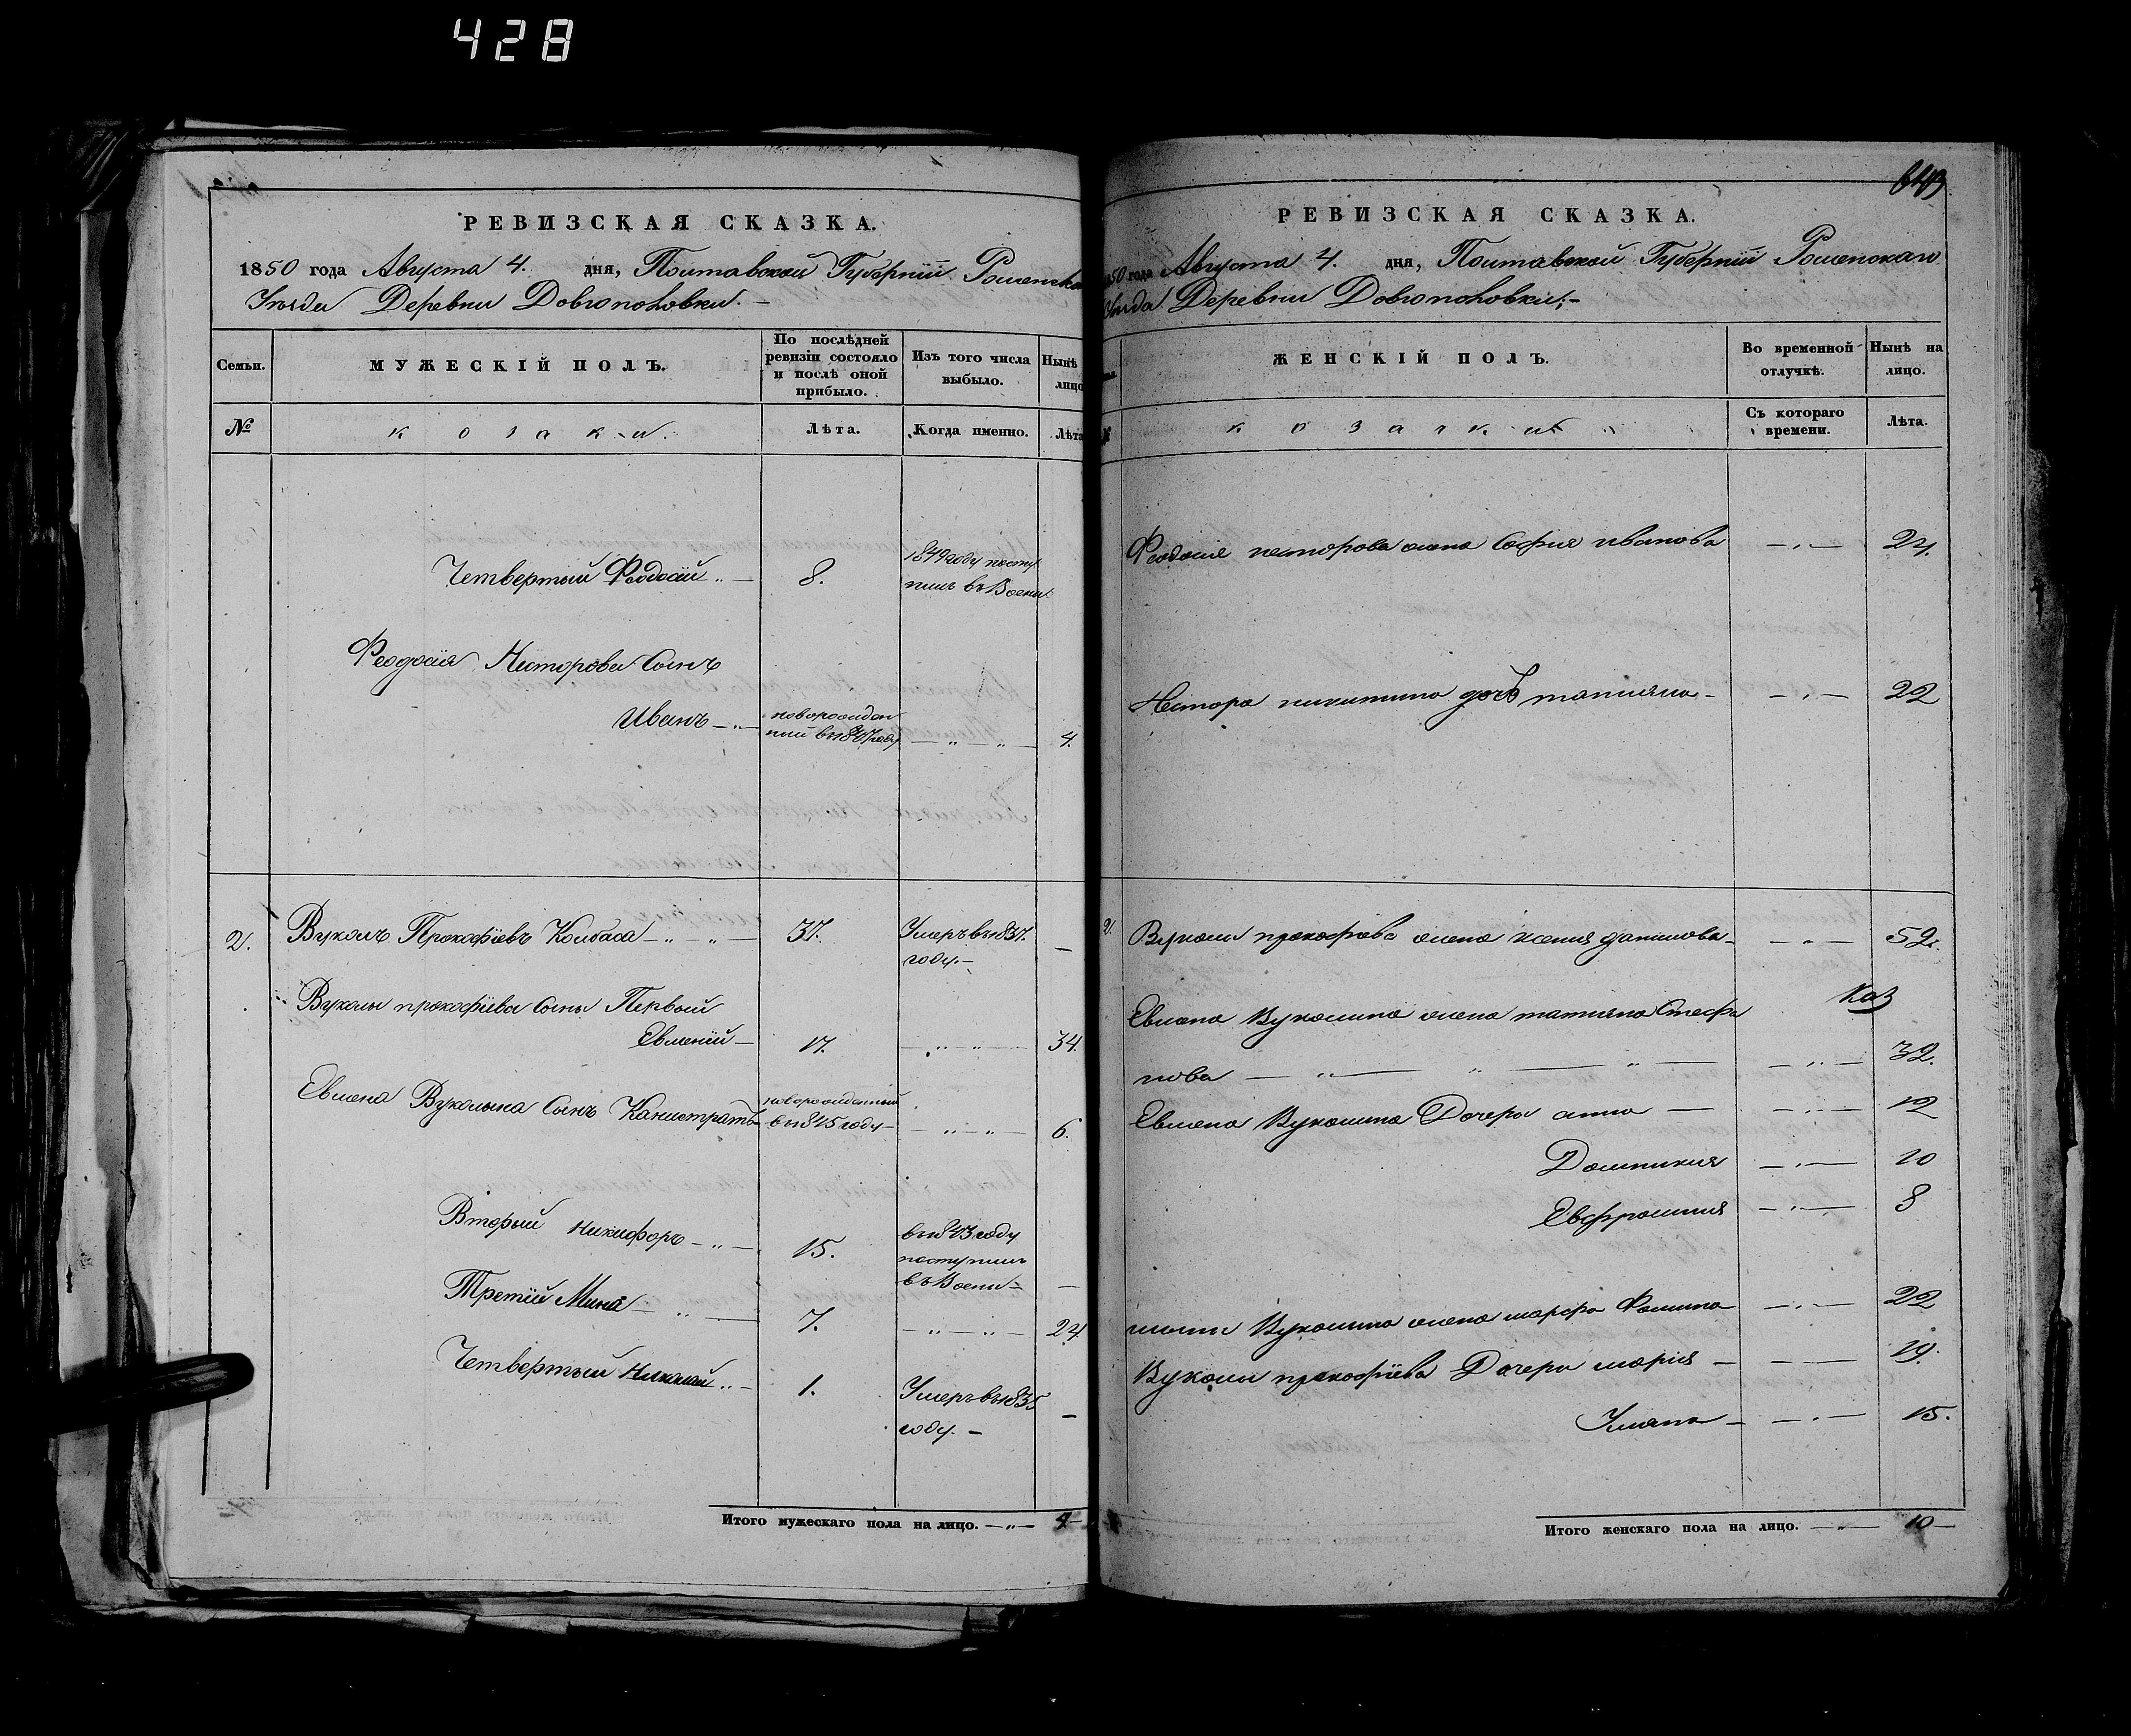 428
РЕВИЗСКАЯ СКАЗКА.
1850 года Августа 4. дня, Полтавской Губерніи Роменска
Уезда Деревни Довгополовки.—
Семьи.
МУЖЕСКІЙ ПОЛЪ.
По послѣдней ревизіи состояло и послѣ оной прибыло.
Изъ того числа выбыло.
Нынѣ лицо
№
козаки.
Лѣта.
Когда именно.
Лѣта
Четвертый Феодосій
8.
1849 году посту
пилъ въ Военн.
Феодосія Несторова Сынъ
Иванъ
новорожден
ный въ 1847 году
4.
2.
Вуколъ Прокофіевъ Колбаса
37.
Умеръ въ 1837.
году.—
Вуколы прокофіева Сыны Первый
Евменій
17.
34.
Евмена Вуколына Сынъ Каниотратъ
новорожденный
въ 1845 году
6.
Вторый Никифоръ
15.
въ 1843 году
поступилъ
въ Военн
Третій Мина
7.
24
Четвертый Николай
1.
Умеръ въ 1835
году.—
Итого мужескаго пола на лицо. 4
643
РЕВИЗСКАЯ СКАЗКА.
1850 года Августа 4. дня, Полтавской Губерніи Роменскаго
Уезда Деревни Довгополовки;—
ЖЕНСКІЙ ПОЛЪ.
Во временной отлучкѣ.
Нынѣ на лицо.
козачки
Съ котораго времени.
Лѣта.
Феодосія несторова жена Софія иванова
24.
Нестора никитина дочь татіяна
22
2.
Вуколы прокофіева жена ксенія данилова
52.
Евмена Вуколина жена татіяна Стефа
Каз
нова
32.
Евмена Вуколина Дочери анна
12
Домникия
10
Евфросинія
8
мины Вуколина жена марфа Фомина
22
Вуколы прокофіева Дочери марія
19.
Уляна
15.
Итого женскаго пола на лицо. 10